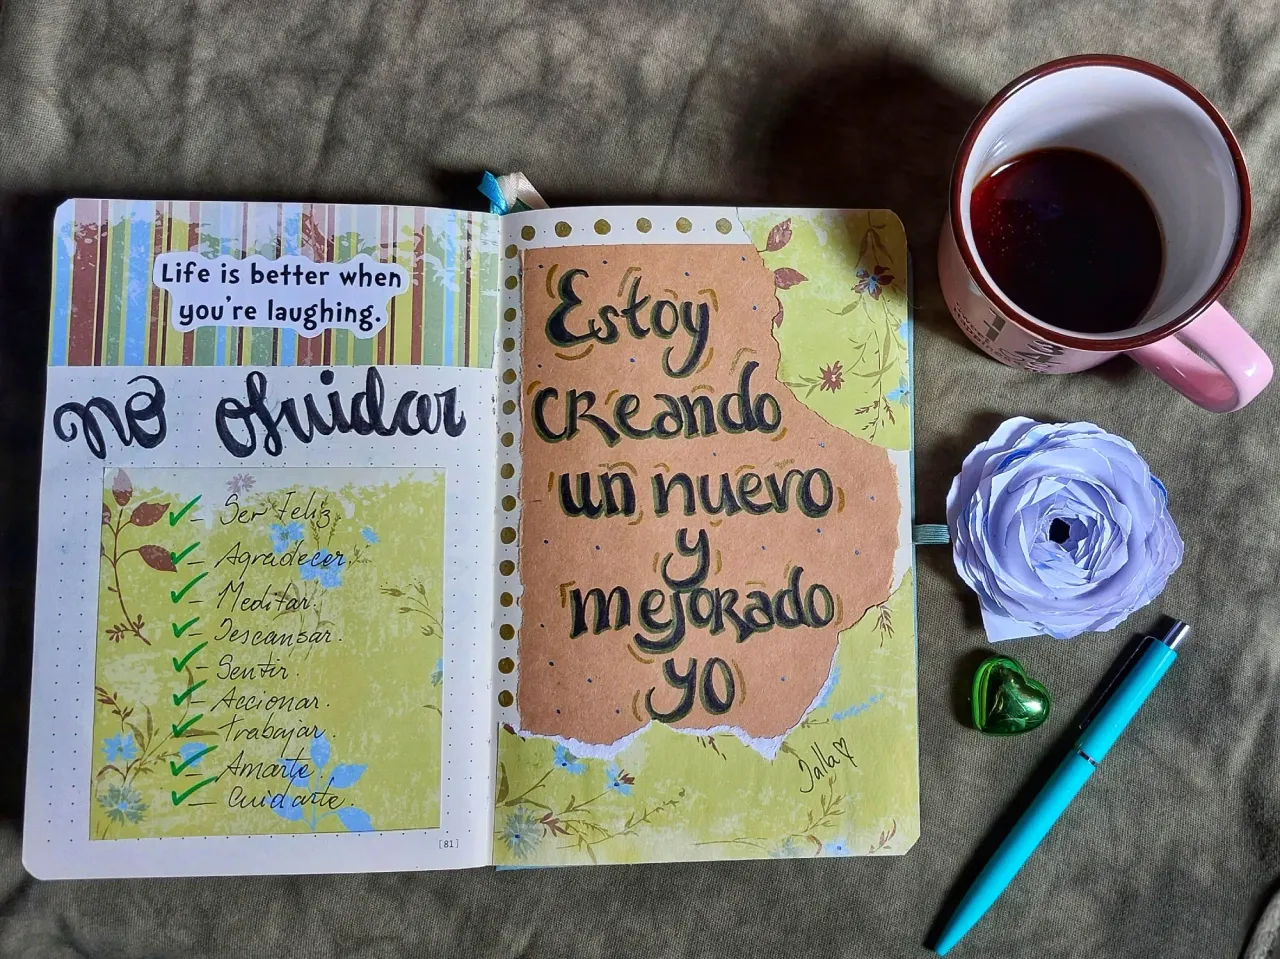 Life is better when
you're laughing.
no olvidar
- Ser Feliz.
- Agradecer.
- Meditar.
- Descansar.
- Sentir.
- Accionar.
- Trabajar.
- Amarte.
- Cuidarte.
[81]
Estoy
creando
un nuevo
y
mejorado
yo
Jalla